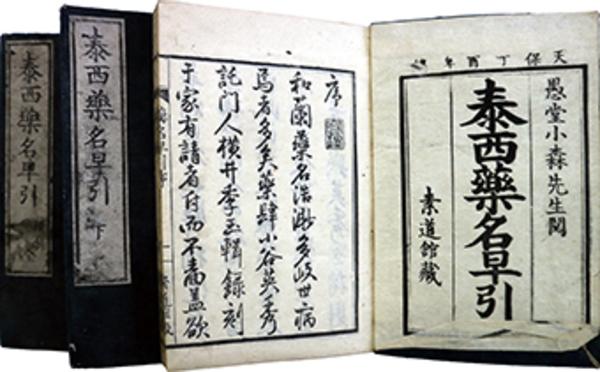 天保丁酉年
愚堂小森先生閲
泰西藥名早引
素道館藏
序
和蘭藥名浩瀚多岐世病
焉者多矣藥肆小谷英秀
託門人横井季玉輯録刻
于家有請者付而不嗇蓋欲
泰西藥名早引
泰西藥名早引